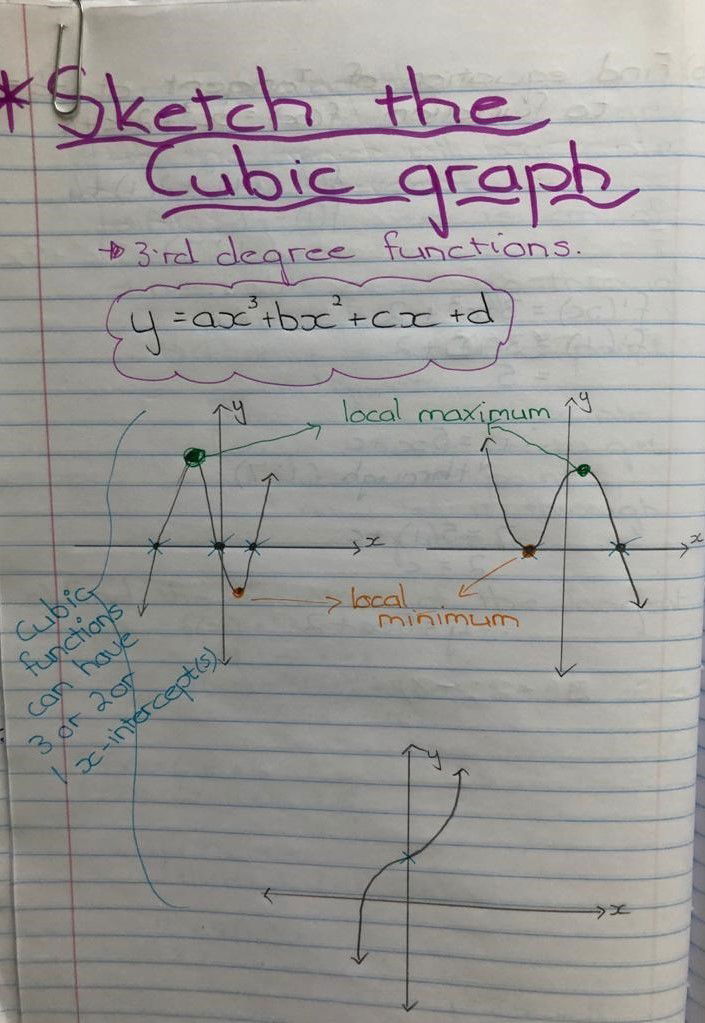 * Sketch the
Cubic graph
→ 3rd degree functions.
y = ax³ + bx² + cx + d
y
local maximum
y
x
x
local
minimum
Cubic
functions
can have
3 or 2 or
1 x-intercept(s)
y
x